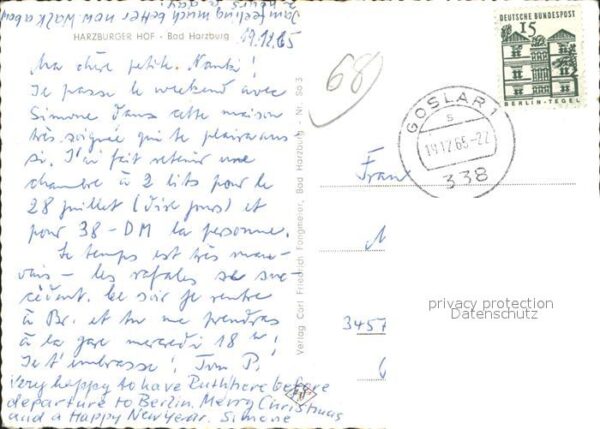 I am feeling much better now walk about
2 hours a day!
HARZBURGER HOF - Bad Harzburg
19.12.65
Ma chère petite Nanki!
Je passe le weekend avec
Simone dans cette maison
très soignée qui te plaira aus-
si. J'ai fait retenir une
chambre à 2 lits pour le
28 juillet (dix jours) et
pour 38 - DM la personne.
Le temps est très mau-
vais - les rafales se suc-
cèdent. Ce soir je rentre
à Br. et tu me prendras
à la gare mercredi 18 h!
Je t'embrasse! Ton P.
Very happy to have Ruth here before
departure to Berlin. Merry Christmas
and a Happy New Year. Simone
68
DEUTSCHE BUNDESPOST
15
BERLIN-TEGEL
GOSLAR 1
s
19.12.65-22
338
Frau
3457
Verlag Carl Friedrich Fangmeier, Bad Harzburg - Nr. So 3
privacy protection
Datenschutz